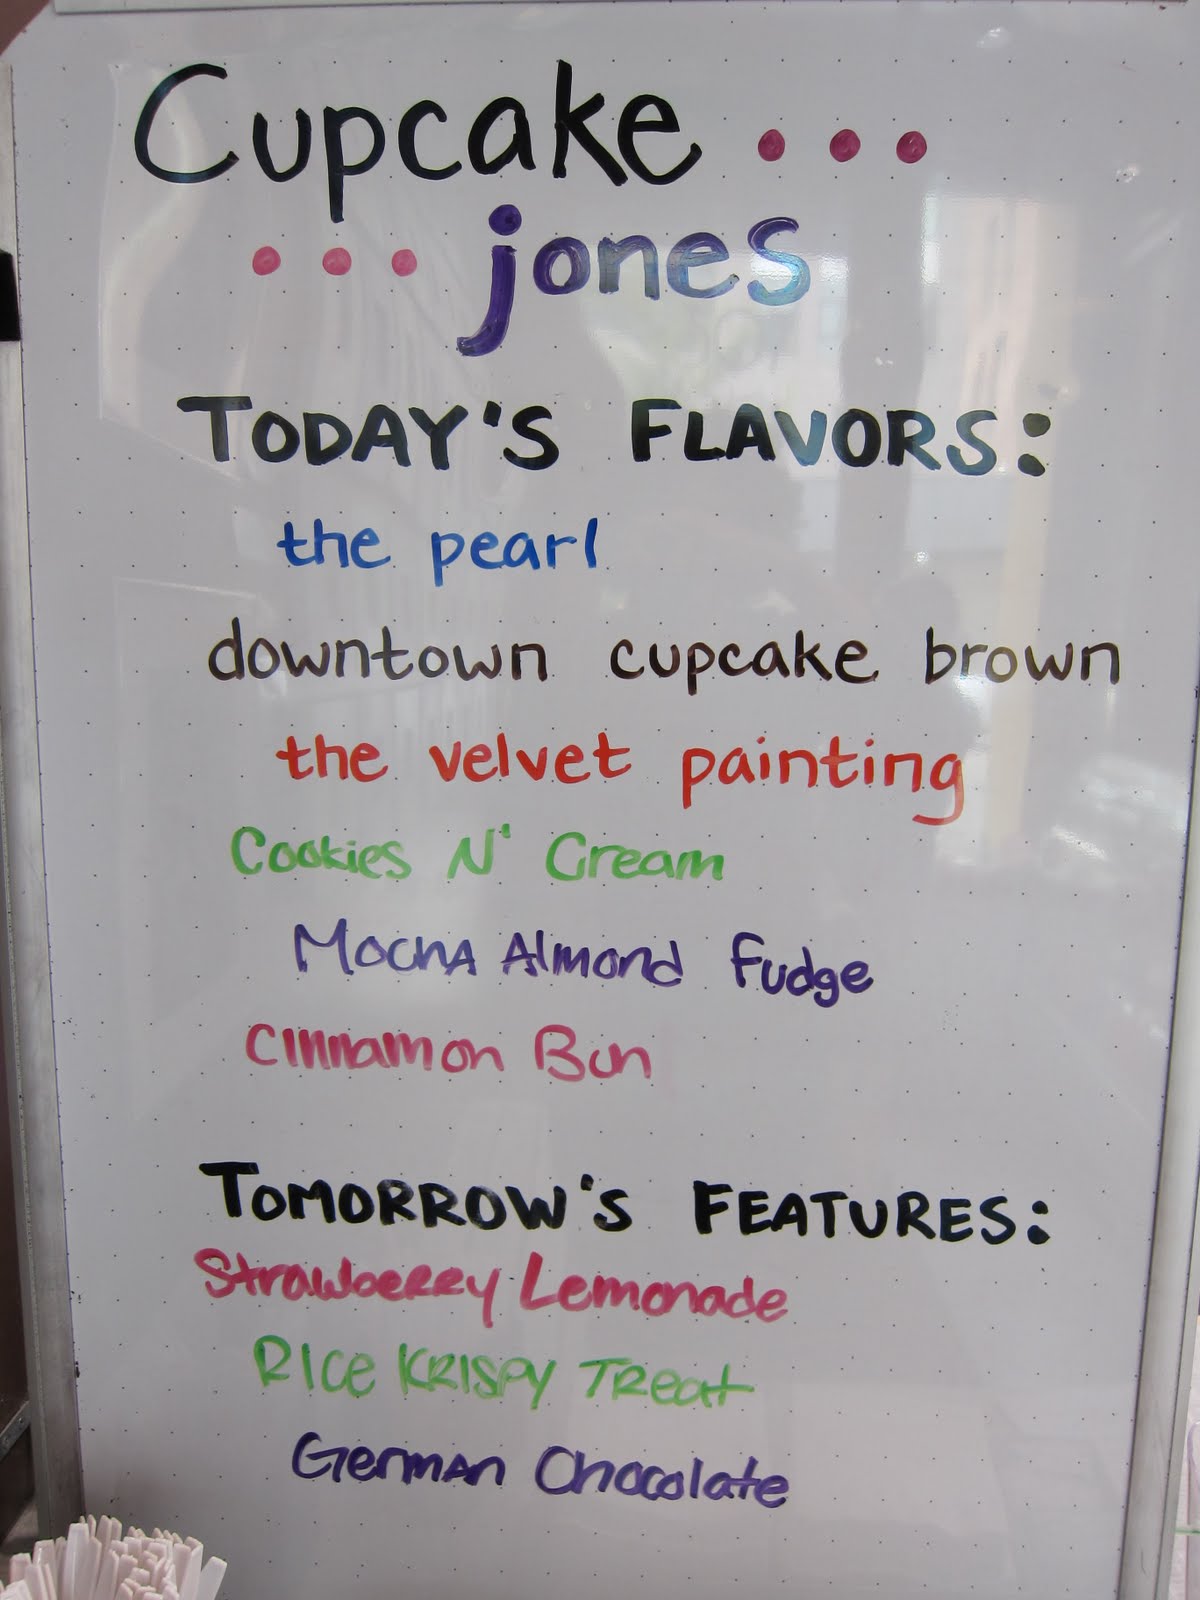 Cupcake •••
••• jones
TODAY'S FLAVORS:
the pearl
downtown cupcake brown
the velvet painting
Cookies N' Cream
Mocha Almond Fudge
Cinnamon Bun
TOMORROW'S FEATURES:
Strawberry Lemonade
Rice Krispy Treat
German Chocolate